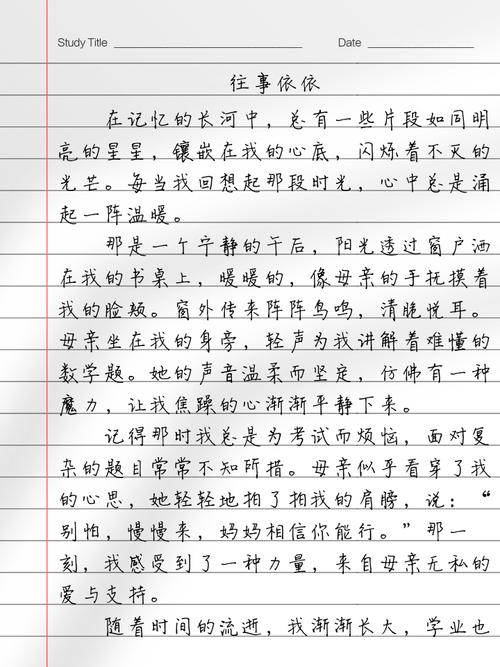 Study Title Date
往事依依
在记忆的长河中，总有一些片段如同明
亮的星星，镶嵌在我的心底，闪烁着不灭的
光芒。每当我回想起那段时光，心中总是涌
起一阵温暖。
那是一个宁静的午后，阳光透过窗户洒
在我的书桌上，暖暖的，像母亲的手抚摸着
我的脸颊。窗外传来阵阵鸟鸣，清脆悦耳。
母亲坐在我的身旁，轻声为我讲解着难懂的
数学题。她的声音温柔而坚定，仿佛有一种
魔力，让我焦躁的心渐渐平静下来。
记得那时我总是为考试而烦恼，面对复
杂的题目常常不知所措。母亲似乎看穿了我
的心思，她轻轻地拍了拍我的肩膀，说：“
别怕，慢慢来，妈妈相信你能行。”那一
刻，我感受到了一种力量，来自母亲无私的
爱与支持。
随着时间的流逝，我渐渐长大，学业也